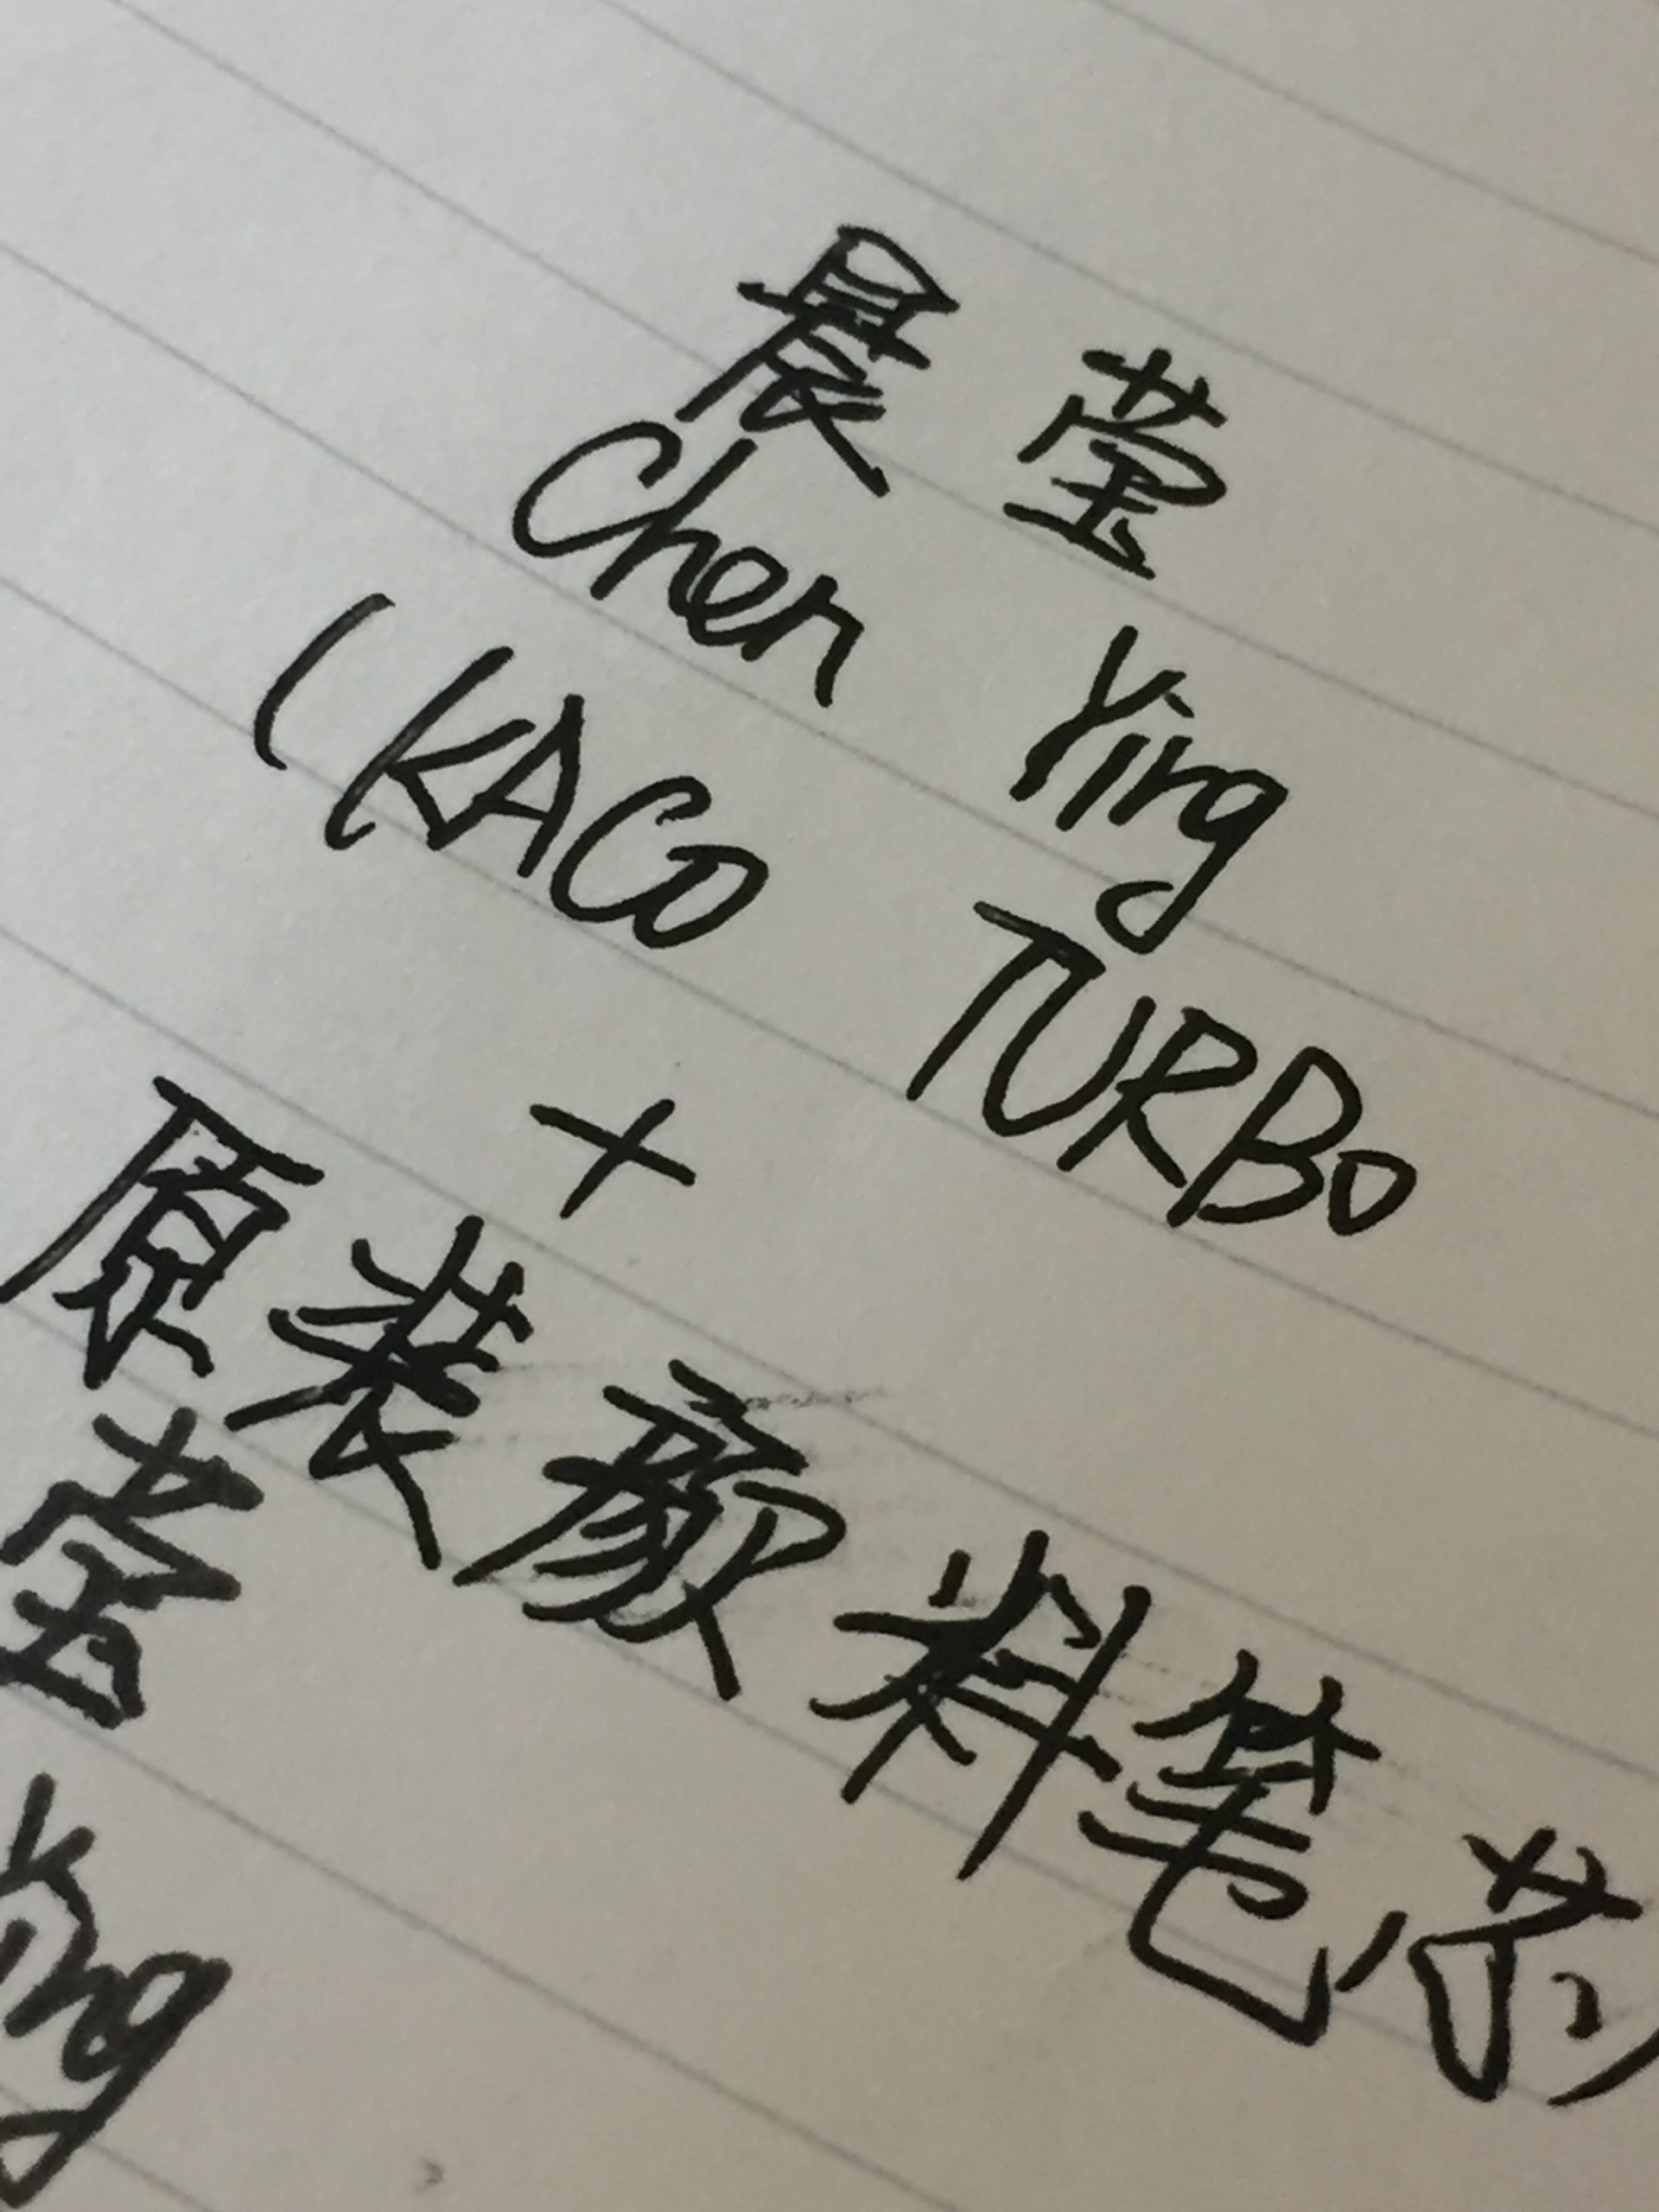 晨 莹
Chen Ying
(KACO TURBO
+
原装颜料笔芯)
莹
Ying